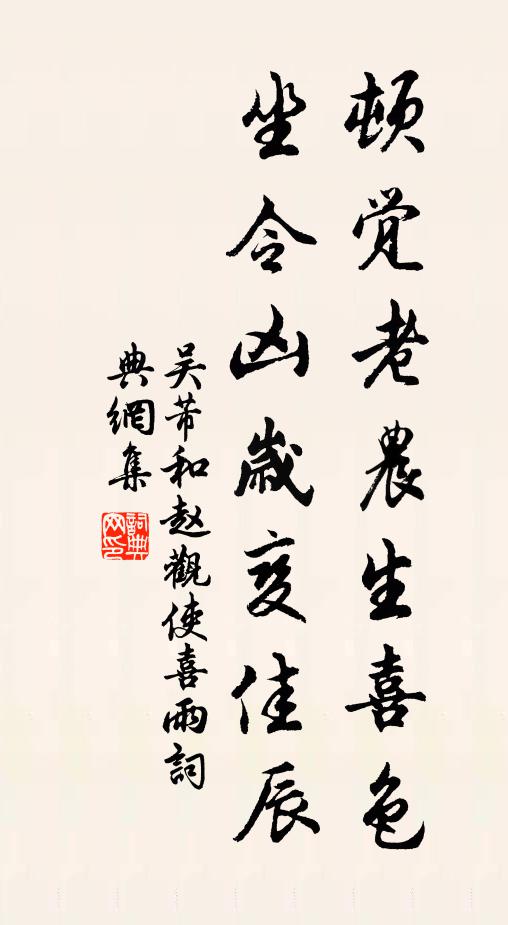 顿觉老農生喜色
坐令凶歲变佳辰
吴芾和赵觀使喜雨詞
典網集
詞典
网印